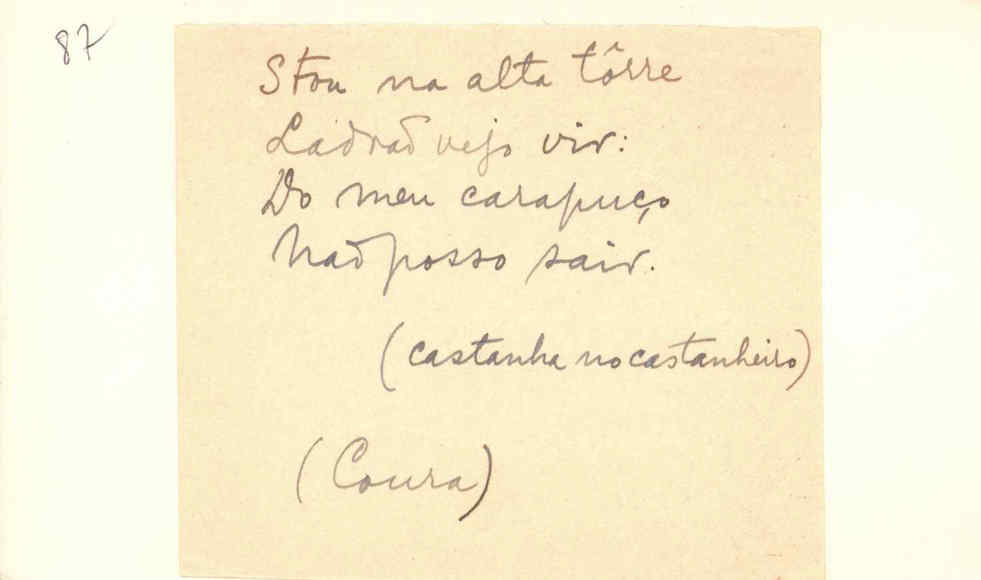 87
Stou na alta tôrre
Ladraõ vejo vir:
Do meu carapuço
Naõ posso sair.
(castanha no castanheiro)
(Coura)